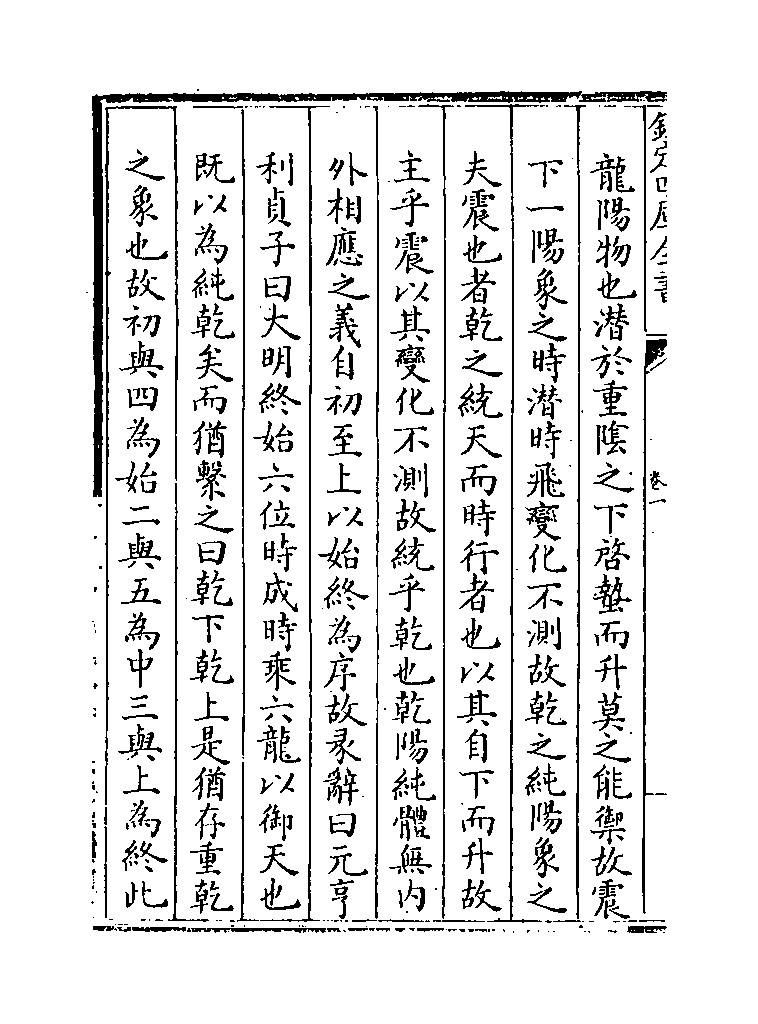 欽定四庫全書
卷一
龍陽物也潛於重陰之下啓蟄而升莫之能禦故震
下一陽象之時潛時飛變化不測故乾之純陽象之
夫震也者乾之統天而時行者也以其自下而升故
主乎震以其變化不測故統乎乾也乾陽純體無内
外相應之義自初至上以始終為序故彖辭曰元亨
利貞子曰大明終始六位時成時乘六龍以御天也
既以為純乾矣而猶繫之曰乾下乾上是猶存重乾
之象也故初與四為始二與五為中三與上為終此